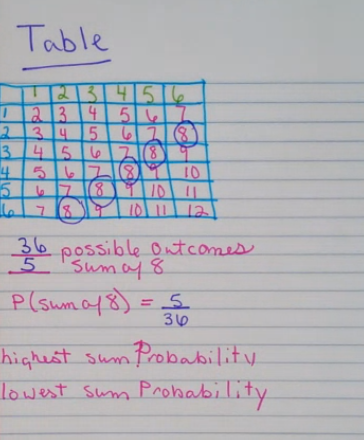 Table
1 2 3 4 5 6
1 2 3 4 5 6 7
2 3 4 5 6 7 8
3 4 5 6 7 8 9
4 5 6 7 8 9 10
5 6 7 8 9 10 11
6 7 8 9 10 11 12
36 possible outcomes
5 sum of 8
P(sum of 8) = 5/36
highest sum Probability
lowest sum Probability